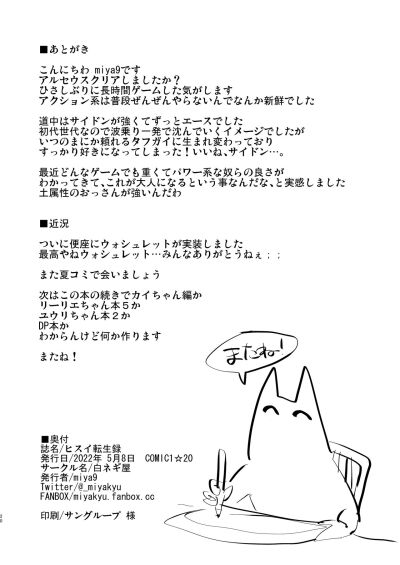 ■あとがき
こんにちわ miya9です
アルセウスクリアしましたか？
ひさしぶりに長時間ゲームした気がします
アクション系は普段ぜんぜんやらないんでなんか新鮮でした
道中はサイドンが強くてずっとエースでした
初代世代なので波乗り一発で沈んでいくイメージでしたが
いつのまにか頼れるタフガイに生まれ変わっており
すっかり好きになってしまった！いいね、サイドン…。
最近どんなゲームでも重くてパワー系な奴らの良さが
わかってきて、これが大人になるという事なんだな、と実感しました
土属性のおっさんが強いんだわ
■近況
ついに便座にウォシュレットが実装しました
最高やねウォシュレット…みんなありがとうねぇ；；
また夏コミで会いましょう
次はこの本の続きでカイちゃん編か
リーリエちゃん本５か
ユウリちゃん本２か
DP本か
わからんけど何か作ります
またね！
またね!
■奥付
誌名/ヒスイ転生録
発行日/2022年 5月8日 COMIC1☆20
サークル名/白ネギ屋
発行者/miya9
Twitter/@_miyakyu
FANBOX/miyakyu.fanbox.cc
印刷/サングループ 様